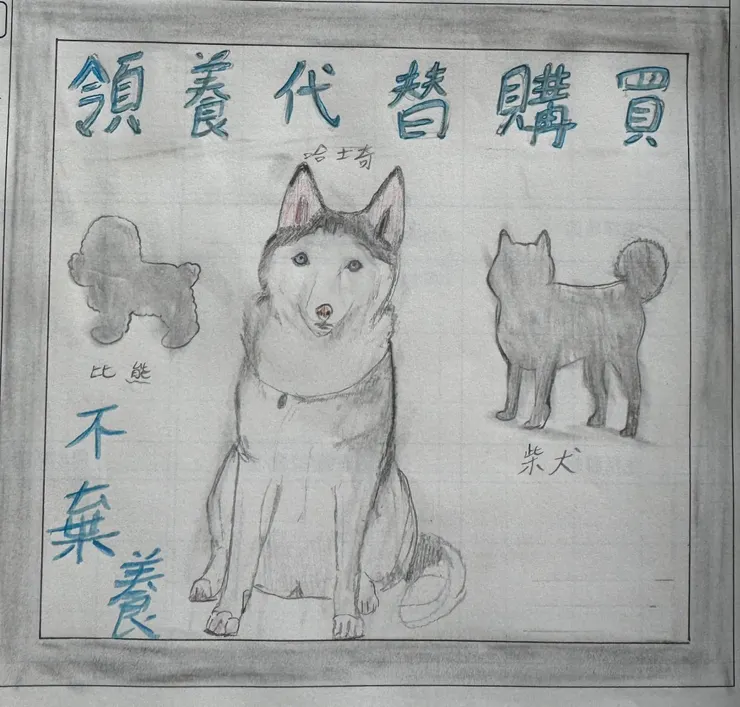 領養代替購買
哈士奇
比熊
柴犬
不棄養